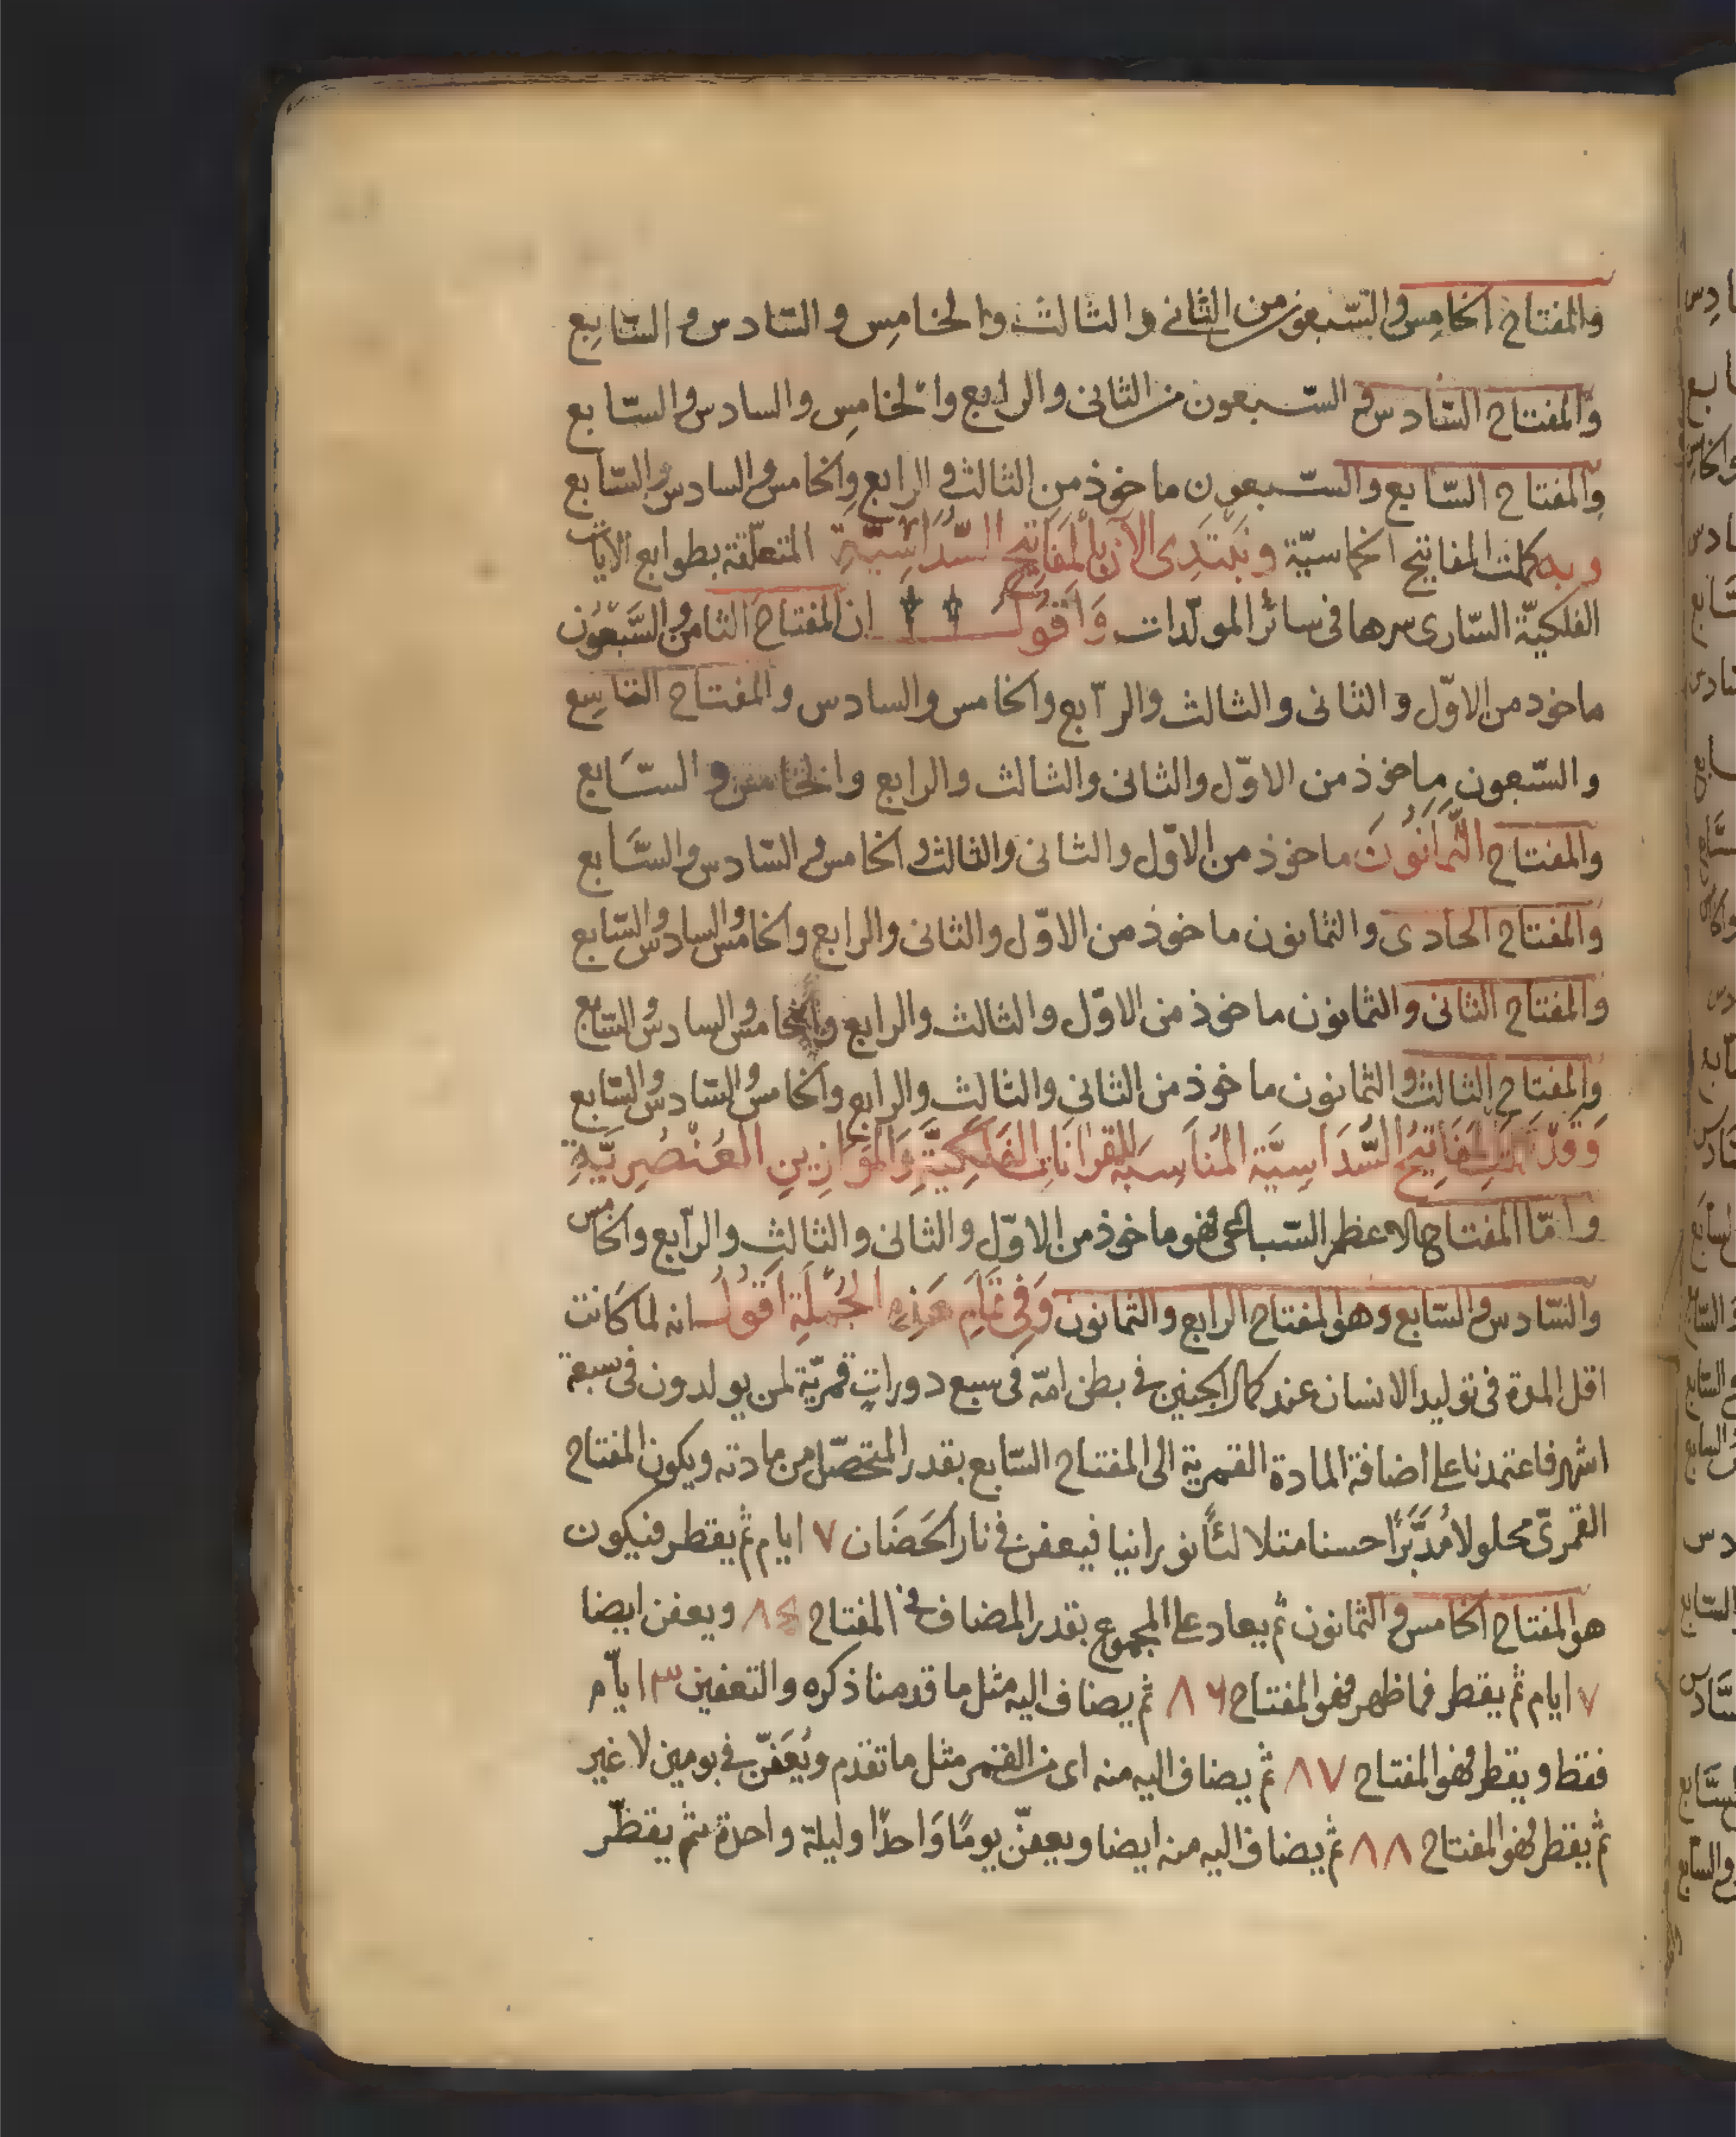 والمفتاح الخامس والسّبعون من الثاني والثالث والخامس والسّادس والسّابع
والمفتاح السّادس و السّبعون من الثاني والرابع والخامس والسادس والسّابع
والمفتاح السّابع والسّبعون ماخوذ من الثالث و الرابع والخامس والسادس والسّابع
وبه كملت المفاتيح الخماسيّة ونبتدى الآن بالمفاتيح السّداسيّة المتعلّقة بطوابع الايات
الفلكيّة السّارى سرها فى سائر المولّدات وَاَقول ان المفتاح الثامن والسَّبعُون
ماخوذ من الاوّل والثانى والثالث والرّابع والخامس والسادس والمفتاح التاسِع
والسّبعون ماخوذ من الاوّل والثانى والثالث والرابع والخامس و السّابع
والمفتاح الثّمانُونَ ماخوذ من الاوّل والثانى والثالث و الخامس و السّادس والسّابع
والمفتاح الحادى والثمانون ماخوذ من الاوّل والثانى والرابع والخامس والسادس والسّابع
والمفتاح الثانى والثمانون ماخوذ من الاوّل والثالث والرابع والخامس والسادس والسّابع
والمفتاح الثالث والثمانون ماخوذ من الثانى والثالث والرابع والخامس والسّادس والسّابع
وَقَد المفَاتِيحُ السُّدَاسِيَّة المُنَاسِبَة للقرانَاتِ الفَلَكِيَّةِ وَالمَوَازِينِ العُنْصُرِيَّةِ
وامّا المفتاح الاعظم السّباعى فهو ماخوذ من الاوّل والثانى والثالث والرّابع والخامس
والسّادس والسّابع وهو المفتاح الرابع والثمانون وَفِى تمَامِ هَذِهِ الجُملَةِ اَقُولُ انه لما كَانت
اقل المدة فى توليد الانسان عند كمال الجنين فى بطن امّه فى سبع دوراتٍ قمريّة لمن يولدون فى سبعة
اشهر فاعتمدنا على اضافة المادة القمرية الى المفتاح السّابع بقدر المتحصّل من مادته ويكون المفتاح
القمرىّ محلولا مُدَبَّرًا حسنا متلالئًا نورانيا فيعفن فى نار الحَضَان ٧ ايام ثم يقطر فيكون
هو المفتاح الخامس و الثمانون ثم يعاد على المجموع بقدر المضاف فى المفتاح ٨٥ ويعفن ايضا
٧ ايام ثم يقطر فما ظهر فهو المفتاح ٨٦ ثم يضاف اليه مثل ما قدمنا ذكره والتعفين ٣ ايّام
فقط ويقطر فهو المفتاح ٨٧ ثم يضاف اليه منه اى من القمر مثل ما تقدم ويُعَفّن فى يومين لا غير
ثم يقطر فهو المفتاح ٨٨ ثم يضاف اليه منه ايضا ويعفّن يومًا وَاحدًا وليلة واحدة ثم يقطّر